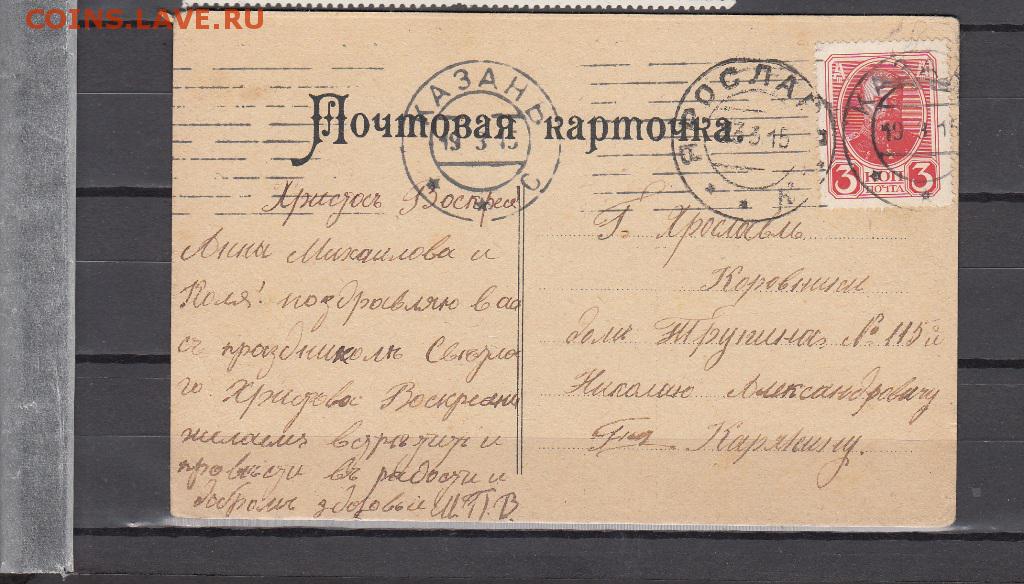 COINS.LAVE.RU
Почтовая карточка.
КАЗАНЬ
19 3 15
С
ЯРОСЛАВ
23 3 15
К
КАЗА
19 3 15
3 КОП 3
ПОЧТА
Христосъ Воскрес
Анны Михаилова и
Коля! поздравляю вас
съ праздникомъ Светла
го Христова Воскресени
желаемъ встретит и
провъсти въ радости и
добромъ здоровьи И.П.В.
Г. Ярославль
Коровники
домъ Трупина № 115й
Николаю Александровичу
Карякину.